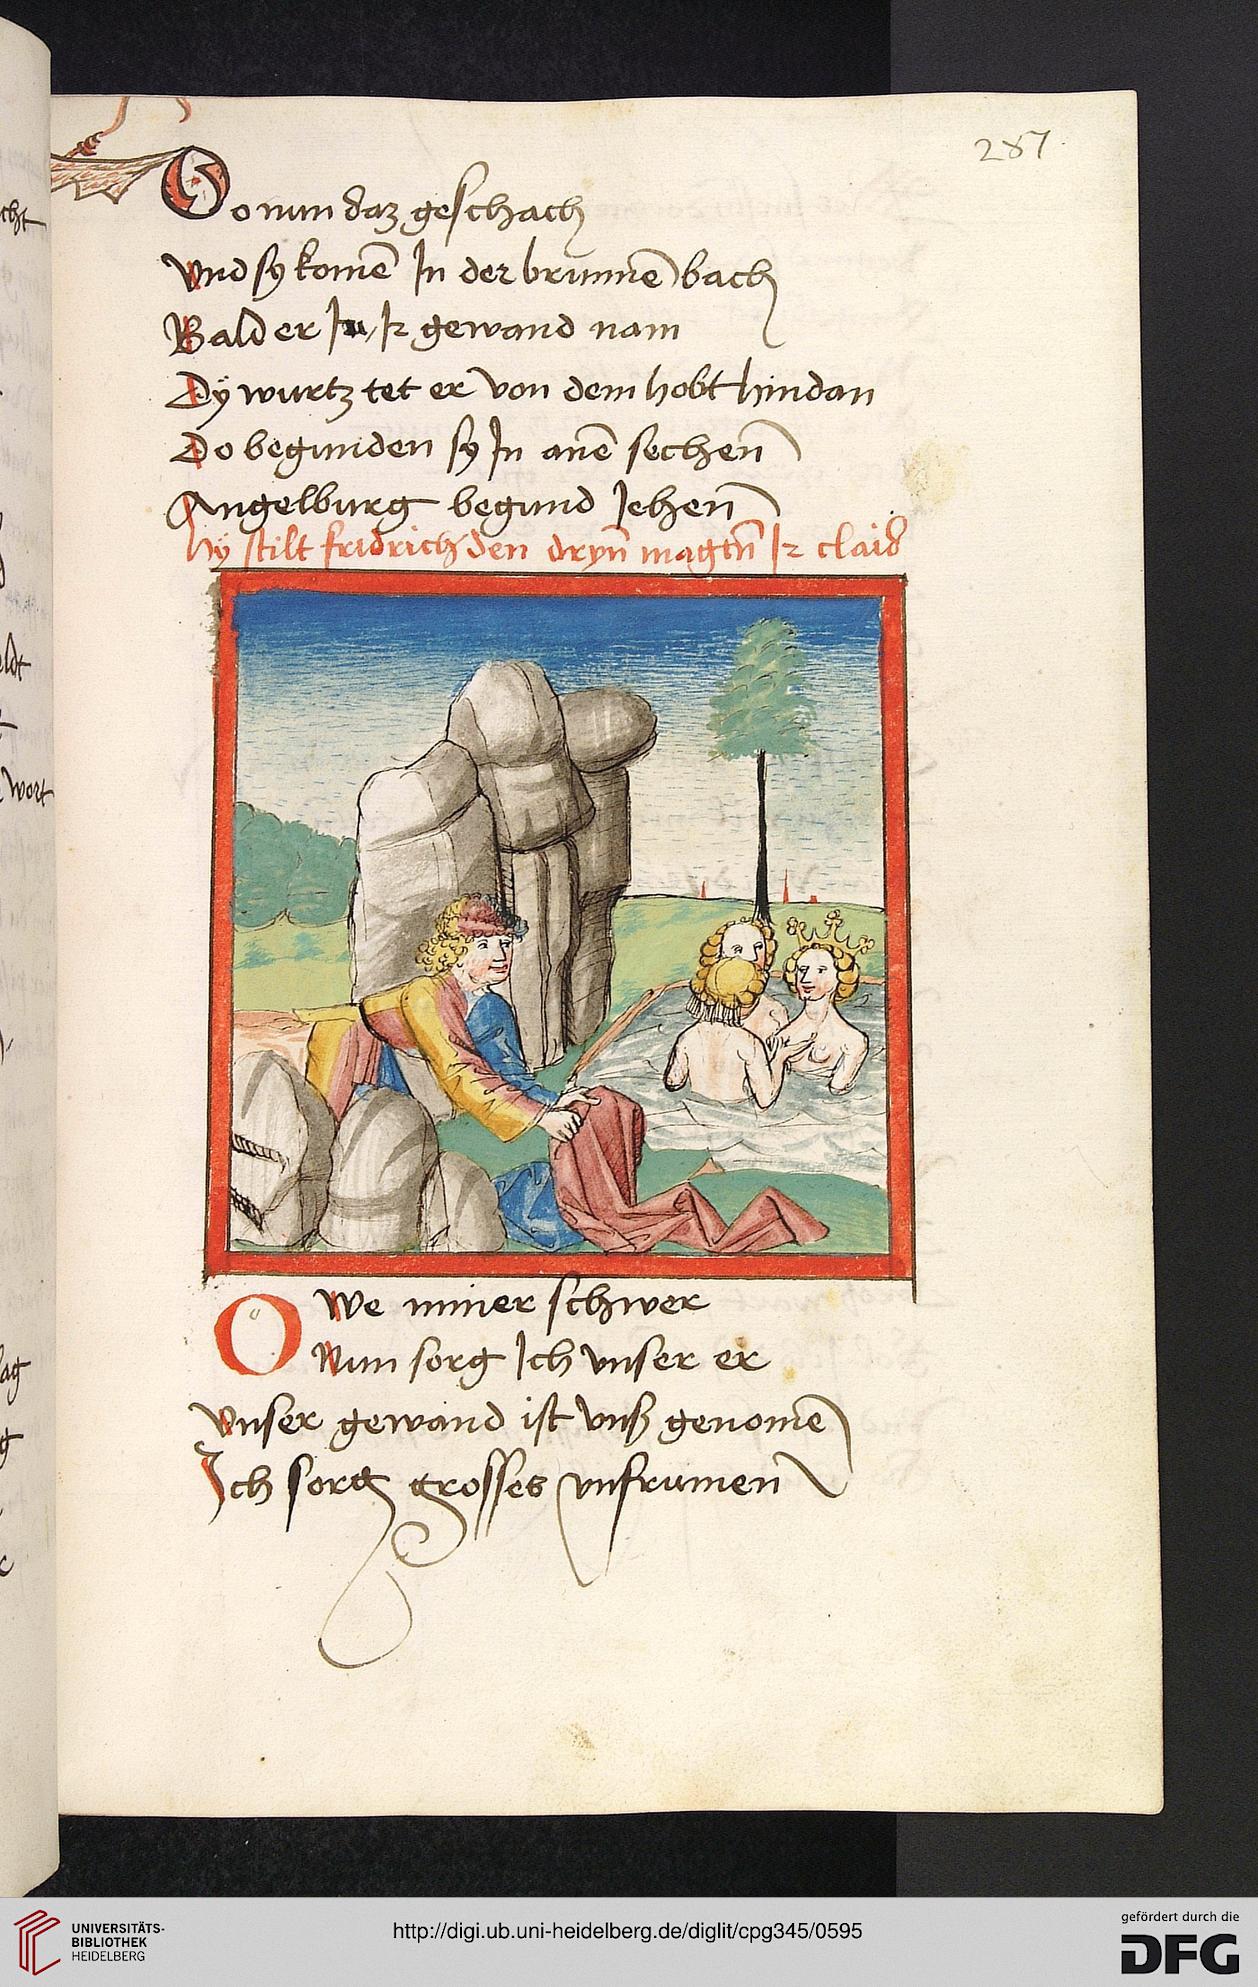 287
Do nun daz geschach
Vnd sy komē Jn der brunnē bach
Bald er Jr gewand nam
Dÿ wurtz tet er von dem hobt hindan
Do begunden sy Jn anē sechen
Angelburg begund Jehen
hÿ stilt fridrich den dryn̄ magtn̄ Jr claid
O We miner schwer
Nun sorg Jch vnser er
Vnser gewand ist vnß genomē
Jch sorg grosses vnfrumen
cht
eldt
wort
lag
g
UNIVERSITÄTS-
BIBLIOTHEK
HEIDELBERG
http://digi.ub.uni-heidelberg.de/diglit/cpg345/0595
gefördert durch die
DFG